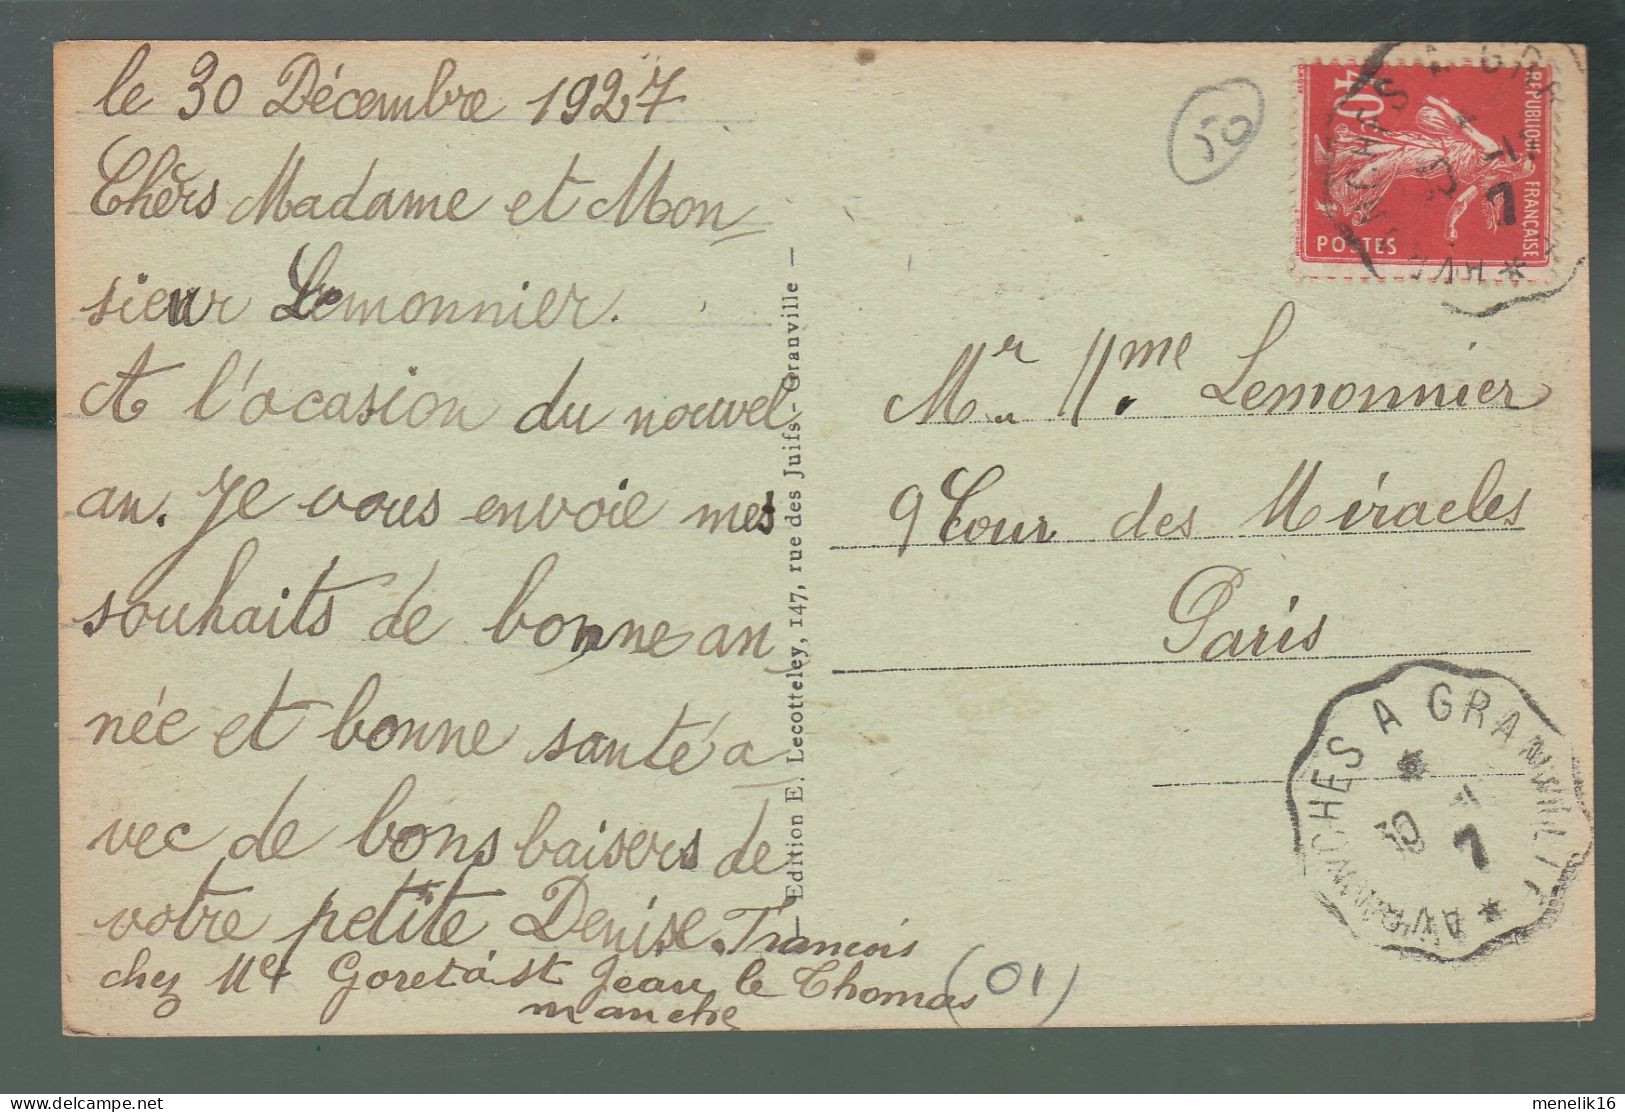 le 30 Décembre 1927
Chèrs Madame et Mon-
sieur Lemonnier.
A l'ocasion du nouvel
an. Je vous envoie mes
souhaits de bonne an
née et bonne santé a
vec de bons baisers de
votre petite Denise. Francois
chez Me Goret à St Jean le Thomas
manche
(01)
— Edition E. Lecotteley, 147, rue des Juifs - Granville —
50
REPUBLIQUE FRANÇAISE
40c
POSTES
Mr Mme Lemonnier
9 Cour des Miracles
Paris
AVRANCHES A GRANVILLE
30
7
menelik16